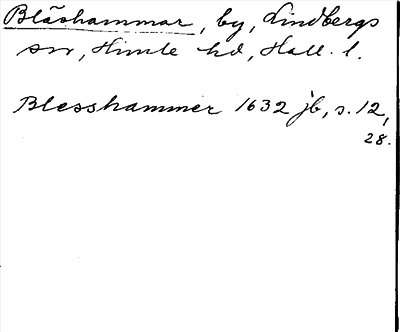 Blåshammar, by, Lindbergs
sn, Himle hd, Hall. l.
Blesshammer 1632 jb, s. 12,
28.